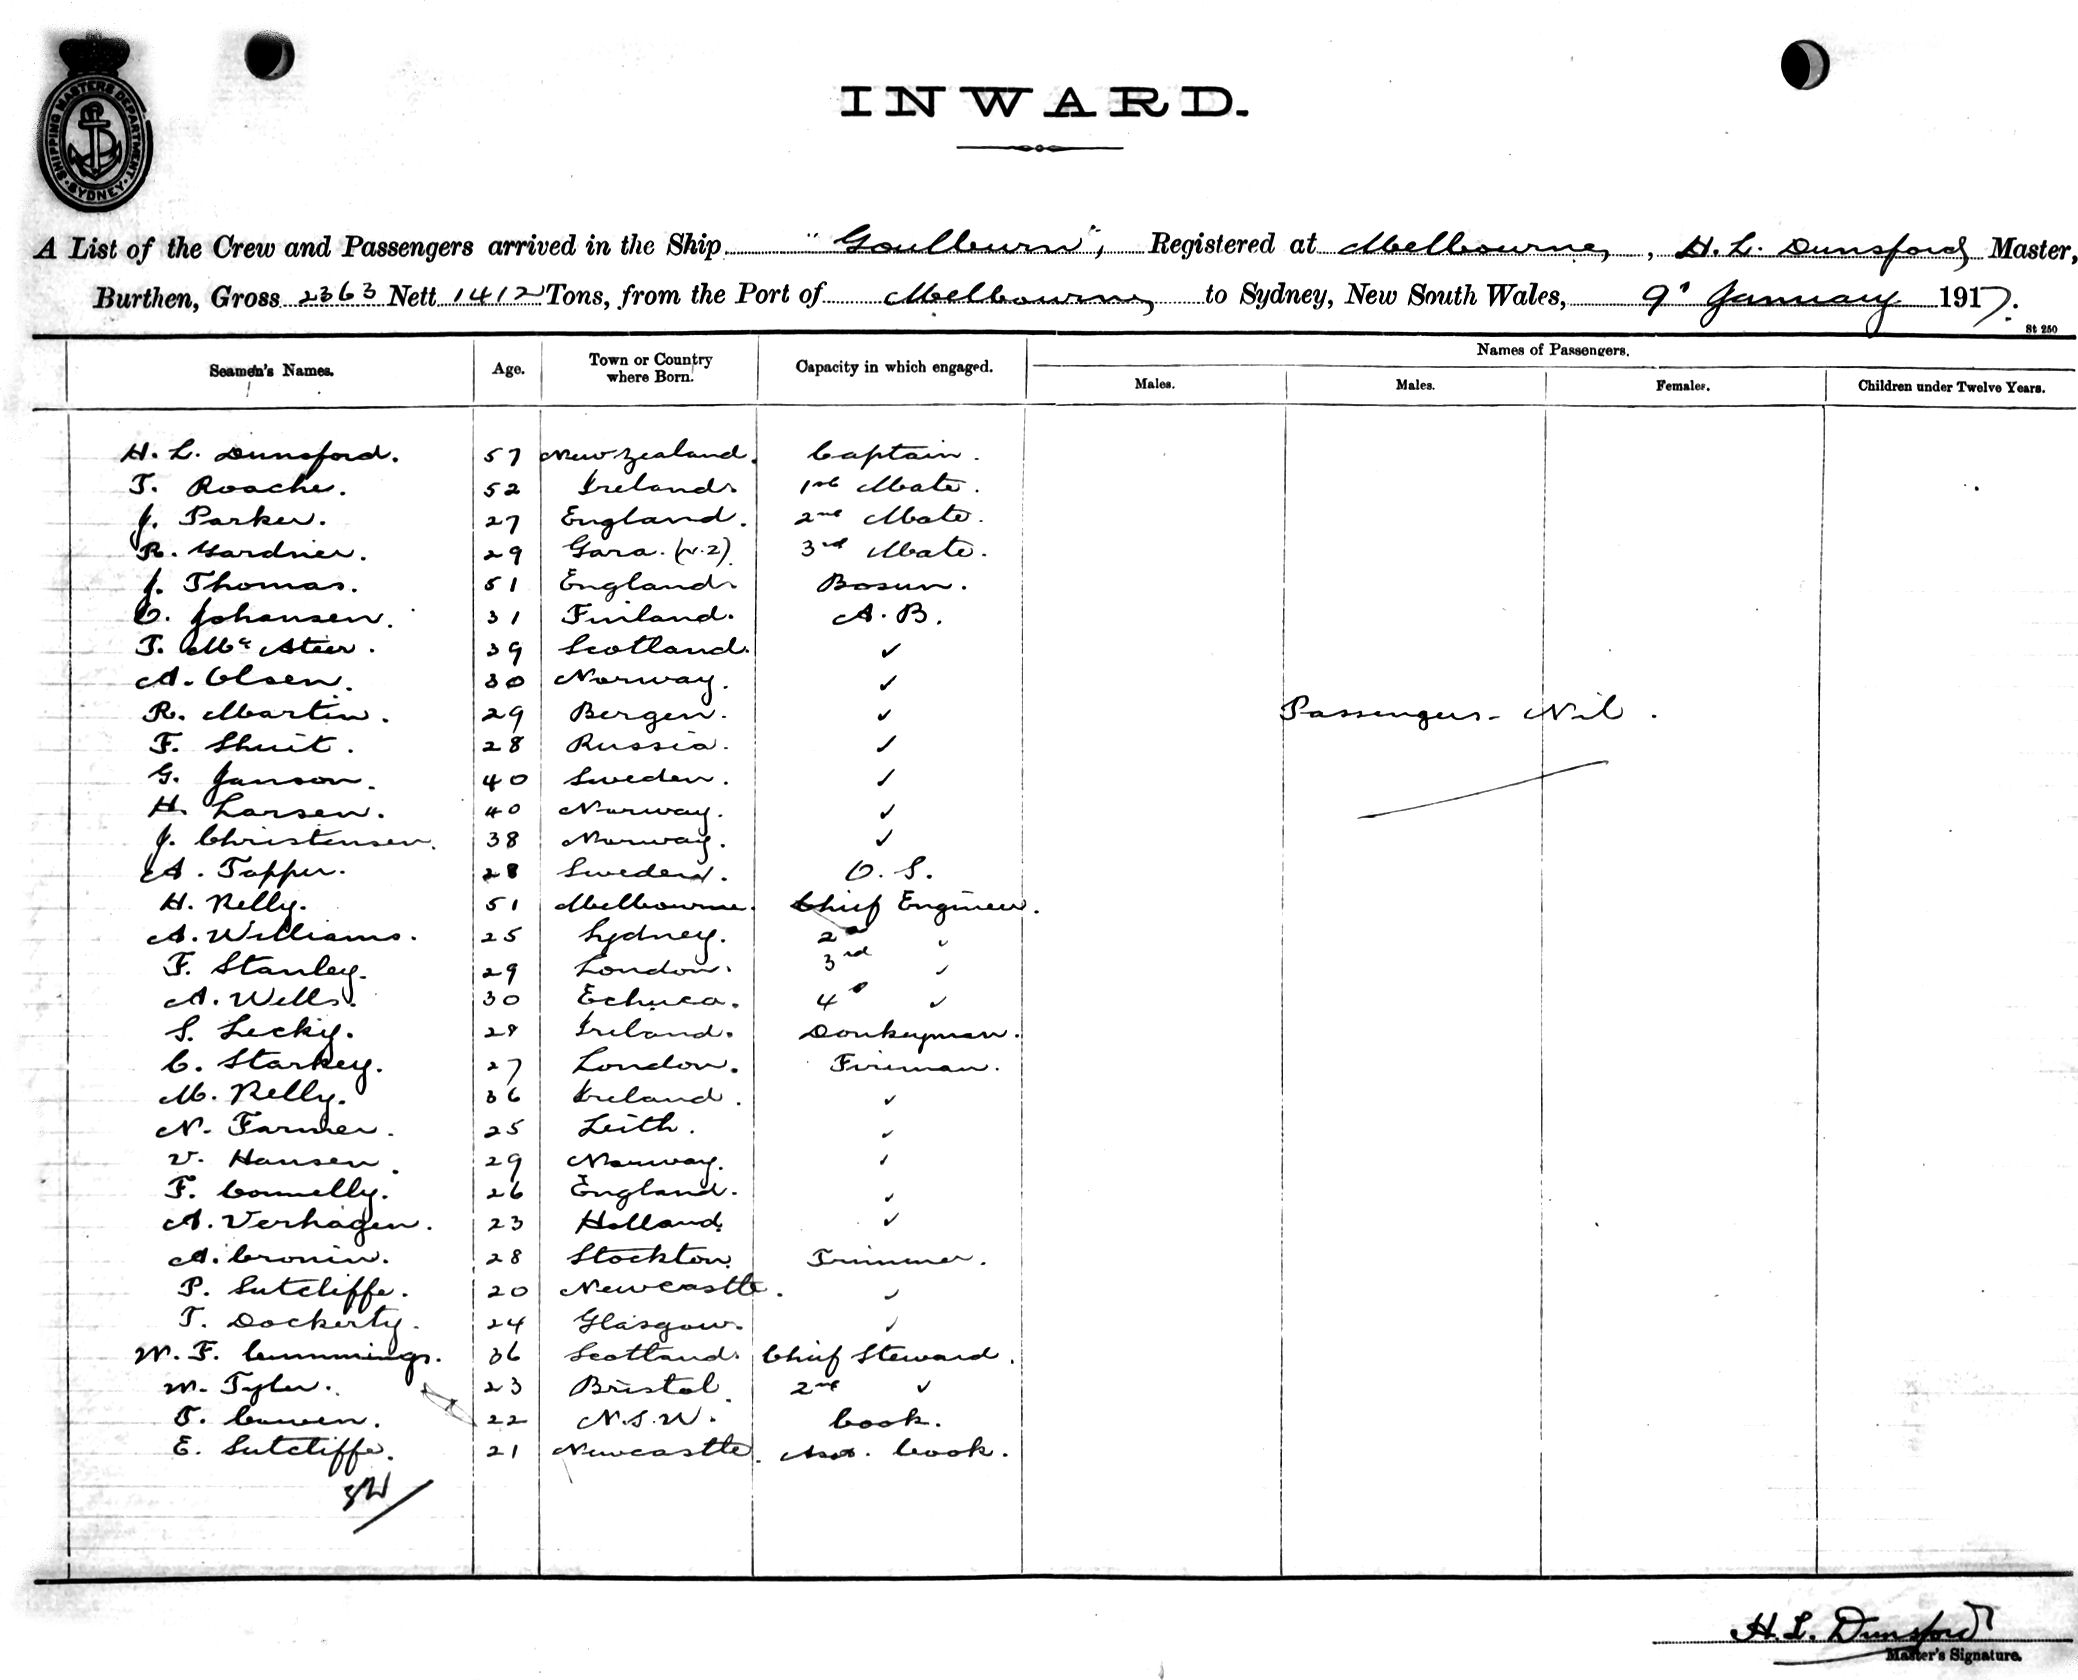 SHIPPING MASTERS DEPARTMENT SYDNEY
INWARD.
A List of the Crew and Passengers arrived in the Ship "Goulburn", Registered at Melbourne, H. L. Dunsford Master,
Burthen, Gross 2363 Nett 1412 Tons, from the Port of Melbourne to Sydney, New South Wales, 9' January 1917.
St 250
Names of Passengers.
Seamen's Names. Age. Town or Country where Born. Capacity in which engaged. Males. Males. Females. Children under Twelve Years.
H. L. Dunsford. 57 New Zealand. Captain.
T. Roache. 52 Ireland. 1st Mate.
J. Parker. 27 England. 2nd Mate.
R. Gardner. 29 Gara. (N.Z). 3rd Mate.
J. Thomas. 51 England. Bosun.
C. Johansen. 31 Finland. A.B.
T. McAteer. 39 Scotland. ✓
A. Olsen. 30 Norway. ✓
R. Martin. 29 Bergen. ✓
Passengers - Nil.
F. Shuit. 28 Russia. ✓
G. Janson. 40 Sweden. ✓
H. Larsen. 40 Norway. ✓
J. Christensen. 38 Norway. ✓
A. Tapper. 28 Sweden. O.S.
H. Kelly. 51 Melbourne. Chief Engineer.
A. Williams. 25 Sydney. 2nd ✓
F. Stanley. 29 London. 3rd ✓
A. Wells. 30 Echuca. 4th ✓
S. Lecky. 28 Ireland. Donkeyman.
C. Starkey. 27 London. Fireman.
M. Kelly. 36 Ireland. ✓
N. Farmer. 25 Leith. ✓
V. Hansen. 29 Norway. ✓
F. Connelly. 26 England. ✓
A. Verhagen. 23 Holland. ✓
A. Cronin. 28 Stockton. Trimmer.
P. Sutcliffe. 20 Newcastle. ✓
T. Dockerty. 24 Glasgow. ✓
W. F. Cummings. 36 Scotland. Chief Steward.
W. Tyler. 23 Bristol. 2nd ✓
T. Cowen. 22 N.S.W. Cook.
E. Sutcliffe. 21 Newcastle. Asst. Cook.
H. L. Dunsford
Master's Signature.